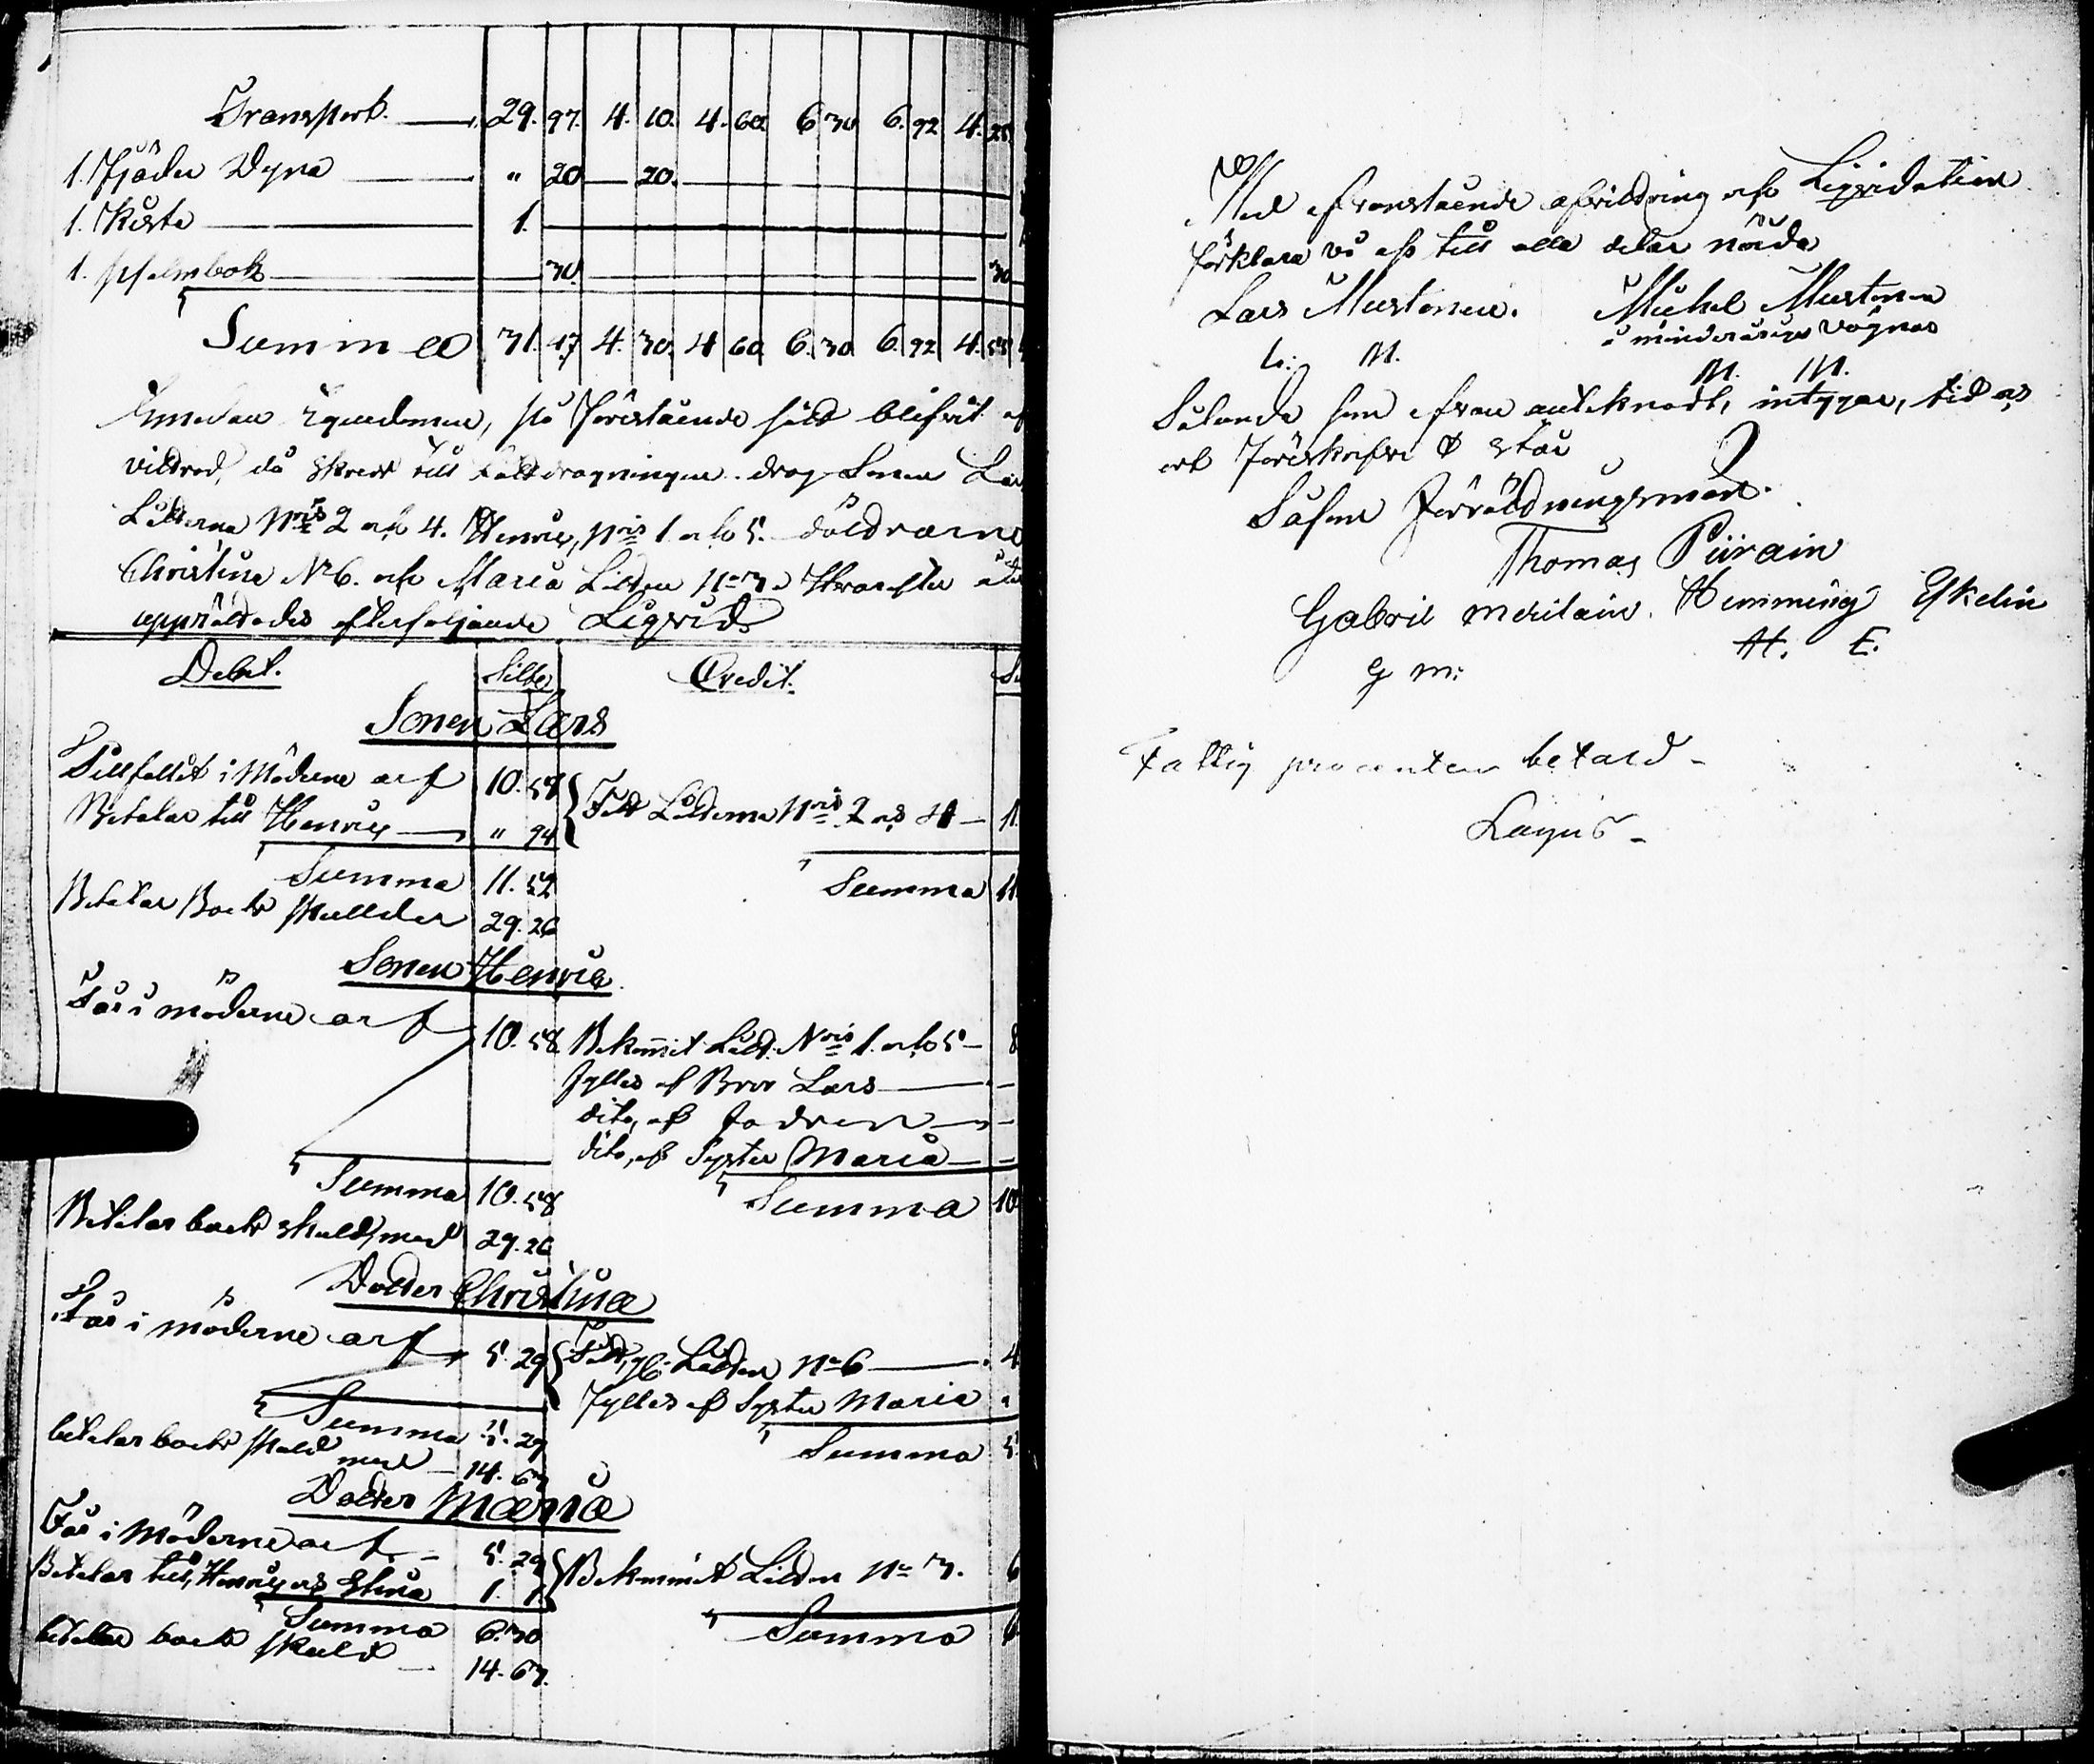 Transport. 29. 97. 4. 10. 4. 60. 6 30 6. 92 4. 25.
1. Fjäder Dyna " 20 20.
1. Kista 1.
1. psalmbok 30. 30
Summa 31. 47 4. 30. 4 60 6. 30 6. 92 4. 55
Emedan Egendomen, på förestående sätt blifvit af
vittrad, då skreds till Lottdragningen drog Sonen Lars
Lotterna Nris 2 och 4. Henric, Nris 1 och 5. Döttrarne
Christina N 6. och Maria Lotten No 3. Hvarefter
upprättades efterföljande Liqvid
Debet. Silfver Credit. S
Sonen Lars
Tillfallit i Möderne arf 10. 58 Fått Lotterna Nris 2 och 4 11
Betalar till Henric " 94
Summa 11. 52 Summa 11
Betalar Boets skulder 29. 26
Sonen Henric
Får i möderne arf 10. 58 Bekommit Lott. Nris 1. och 5 8
fylles af Bror Lars
dito, af fadren
dito, af Syster Maria
Summa 10. 58 Summa 10
Betalar boets skuld, med 29. 26
Dotter Christina
Får i möderne arf 5. 29 Lotten No 6 4
Fylles af Syster Maria
Summa 5. 29 Summa 5
betalar boets skuld med 14. 63
Dotter Maria
Får i Möderne arf 5. 29 Bekommit Lotten No 3. 6
Betalar till, Henric och Stina 1. 1
Summa 6. 30 Summa 6
betalar boets skuld 14. 63.
Med efvanstående afvittring och Liqvidation
förklara vi oss till alla delar nöjda
Lars Mustonen. Michel Mustonen
i minderårigas vägnar
L. M. M. M.
Sålunda som efvan antecknadt, intygar, tid och
ort föreskrifvne står
Såsom förrättningsmän.
Thomas Piirain
Gabriel Meriläin. Hemming Eskelin
G M: H. E.
Fattig procenten betald -
Lagus -